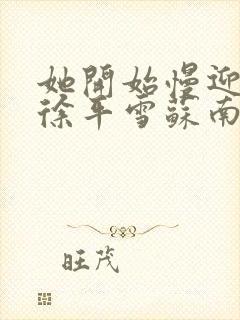 她開始慢迎
徐平雪蘇南
旺茂